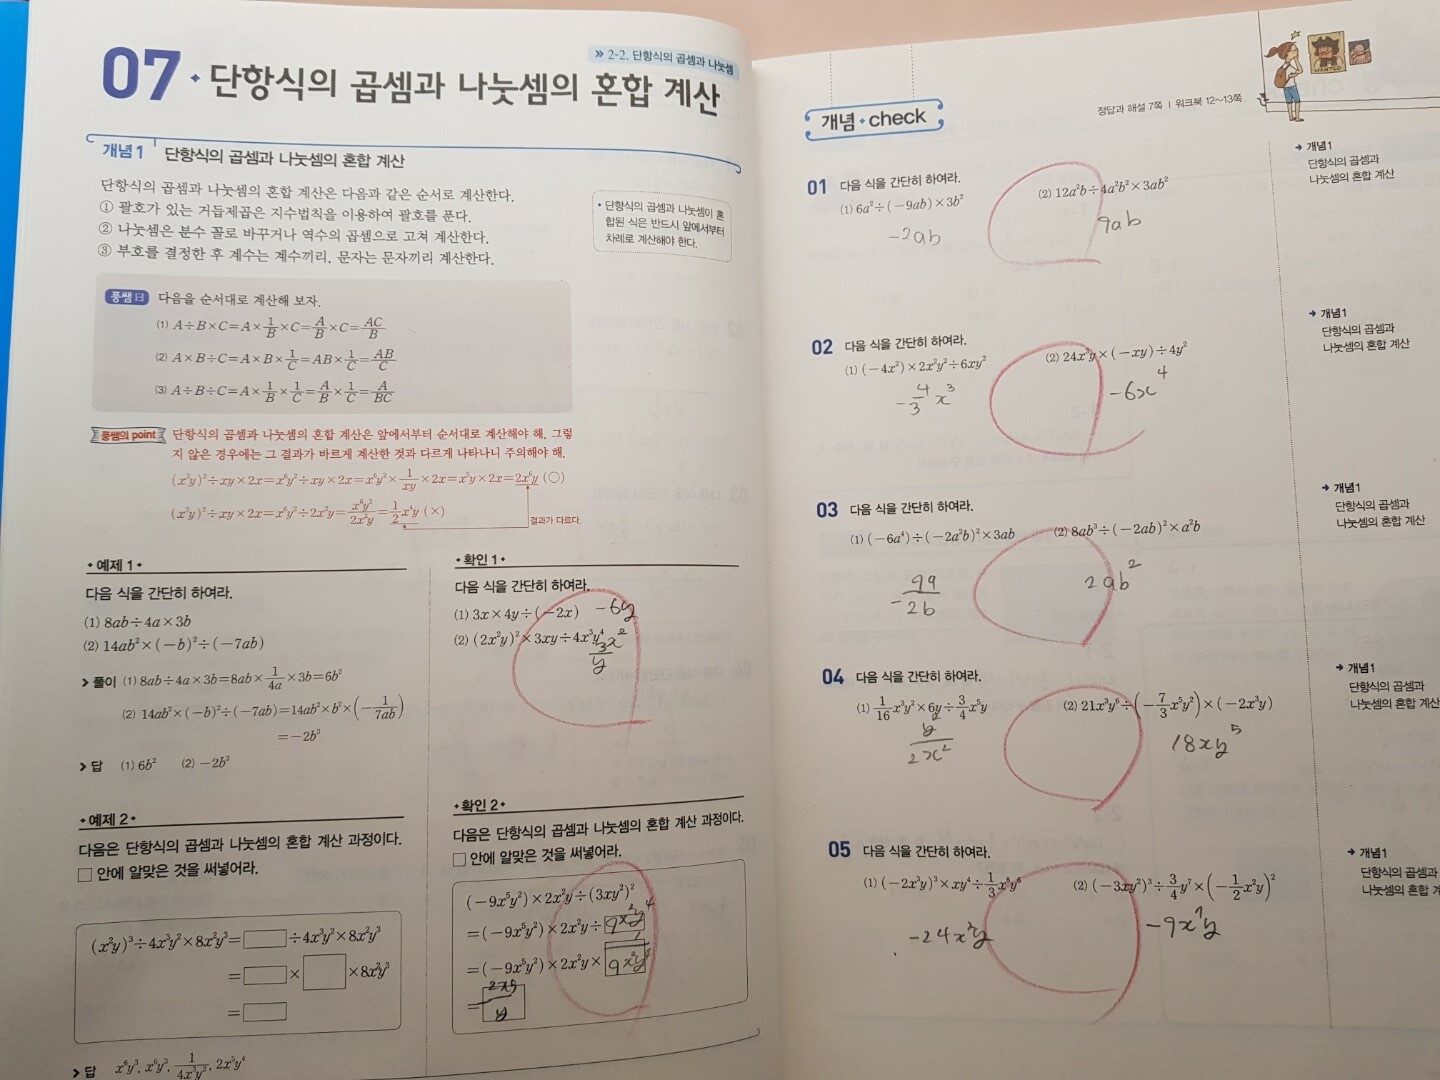 » 2-2. 단항식의 곱셈과 나눗셈
07 단항식의 곱셈과 나눗셈의 혼합 계산
개념 1 단항식의 곱셈과 나눗셈의 혼합 계산
단항식의 곱셈과 나눗셈의 혼합 계산은 다음과 같은 순서로 계산한다.
① 괄호가 있는 거듭제곱은 지수법칙을 이용하여 괄호를 푼다.
② 나눗셈은 분수 꼴로 바꾸거나 역수의 곱셈으로 고쳐 계산한다.
③ 부호를 결정한 후 계수는 계수끼리, 문자는 문자끼리 계산한다.
• 단항식의 곱셈과 나눗셈이 혼
합된 식은 반드시 앞에서부터
차례로 계산해야 한다.
풍쌤日 다음을 순서대로 계산해 보자.
(1) A÷B×C=A×1/B×C=A/B×C=AC/B
(2) A×B÷C=A×B×1/C=AB×1/C=AB/C
(3) A÷B÷C=A×1/B×1/C=A/B×1/C=A/BC
풍쌤의 point 단항식의 곱셈과 나눗셈의 혼합 계산은 앞에서부터 순서대로 계산해야 해. 그렇
지 않은 경우에는 그 결과가 바르게 계산한 것과 다르게 나타나니 주의해야 해.
(x³y)²÷xy×2x=x⁶y²÷xy×2x=x⁶y²×1/xy×2x=x⁵y×2x=2x⁶y (○)
(x³y)²÷xy×2x=x⁶y²÷2x²y=x⁶y²/2x²y=1/2x⁴y (×)
결과가 다르다.
예제 1
다음 식을 간단히 하여라.
(1) 8ab÷4a×3b
(2) 14ab²×(−b)²÷(−7ab)
풀이 (1) 8ab÷4a×3b=8ab×1/4a×3b=6b²
(2) 14ab²×(−b)²÷(−7ab)=14ab²×b²×(−1/7ab)
=−2b³
답 (1) 6b² (2) −2b³
확인 1
다음 식을 간단히 하여라.
(1) 3x×4y÷(−2x) −6y
(2) (2x²y)²×3xy÷4x³y⁴ 3x²/y
예제 2
다음은 단항식의 곱셈과 나눗셈의 혼합 계산 과정이다.
□ 안에 알맞은 것을 써넣어라.
(x²y)³÷4x³y²×8x²y³=□÷4x³y²×8x²y³
=□×□×8x²y³
=□
답 x⁶y³, x⁶y³, 1/4x³y², 2x⁵y⁴
확인 2
다음은 단항식의 곱셈과 나눗셈의 혼합 계산 과정이다.
□ 안에 알맞은 것을 써넣어라.
(−9x⁵y²)×2x²y÷(3xy²)²
=(−9x⁵y²)×2x²y÷9x²y⁴
=(−9x⁵y²)×2x²y×1/9x²y⁴
=
개념 check
정답과 해설 7쪽 | 워크북 12~13쪽
01 다음 식을 간단히 하여라.
(1) 6a²÷(−9ab)×3b² (2) 12a²b÷4a²b²×3ab²
−2ab 9ab
개념1
단항식의 곱셈과
나눗셈의 혼합 계산
02 다음 식을 간단히 하여라.
(1) (−4x²)×2x²y²÷6xy² (2) 24x³y×(−xy)÷4y²
−4/3x³ −6x⁴
개념1
단항식의 곱셈과
나눗셈의 혼합 계산
03 다음 식을 간단히 하여라.
(1) (−6a⁴)÷(−2a²b)²×3ab (2) 8ab³÷(−2ab)²×a²b
−9a/2b 2ab²
개념1
단항식의 곱셈과
나눗셈의 혼합 계산
04 다음 식을 간단히 하여라.
(1) 1/16x³y²×6y÷3/4x⁵y (2) 21x³y⁶÷(−7/3x⁵y²)×(−2x³y)
y²/2x² 18xy⁵
개념1
단항식의 곱셈과
나눗셈의 혼합 계산
05 다음 식을 간단히 하여라.
(1) (−2x³y)³×xy⁴÷1/3x³y⁶ (2) (−3xy²)³÷3/4y⁷×(−1/2x²y)²
−24x⁷y −9x⁷y
개념1
단항식의 곱셈과
나눗셈의 혼합